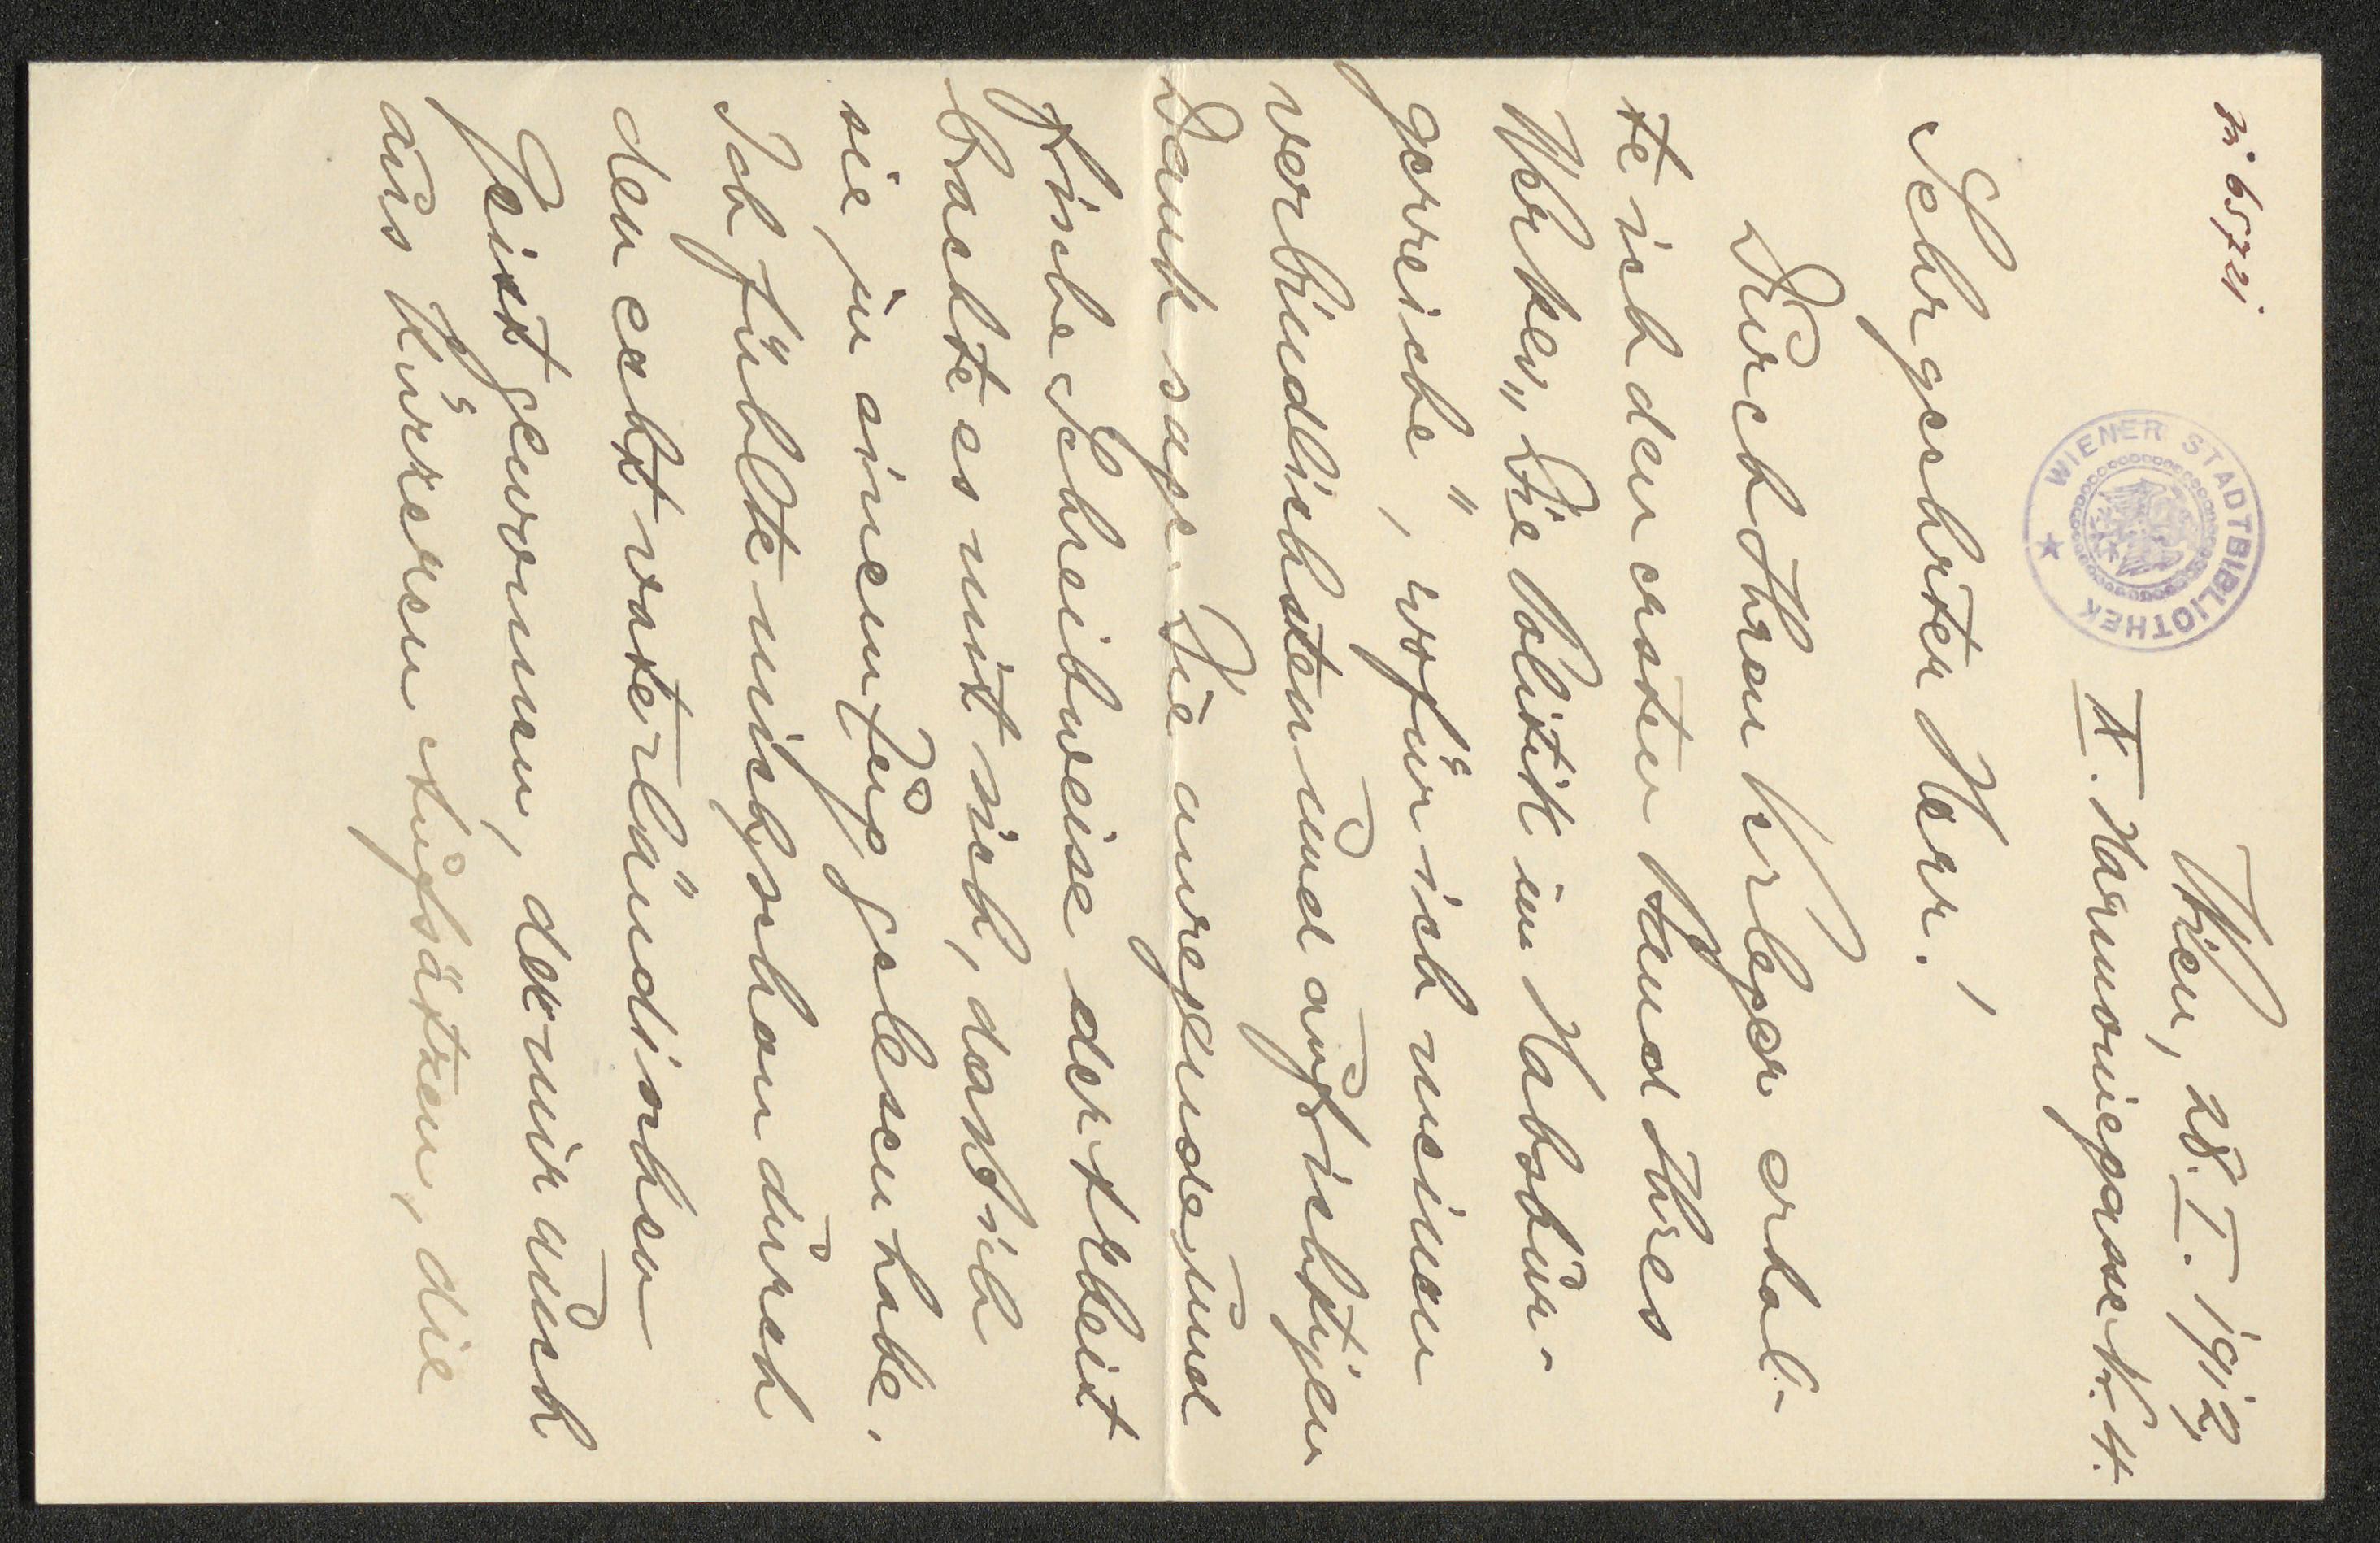 IN 65721
WIENER STADTBIBLIOTHEK
Wien, 28. I. 1912
IX. Harmoniegasse Nr. 4.
Sehr geehrter Herr!
Durch Ihren Verleger erhal-
te ich den ersten Band Ihres
Werkes „Die Politik im Habsbur-
gerreiche", wofür ich meinen
verbindlichsten und aufrichtigen
Dank sage. Die anregende und
frische Schreibweise der Arbeit
brachte es mit sich, dass ich
sie in einem Zug gelesen habe.
Ich fühlte mich schon durch
den echt vaterländischen
Geist gewonnen, der mir auch
aus kürzeren Aufsätzen, die